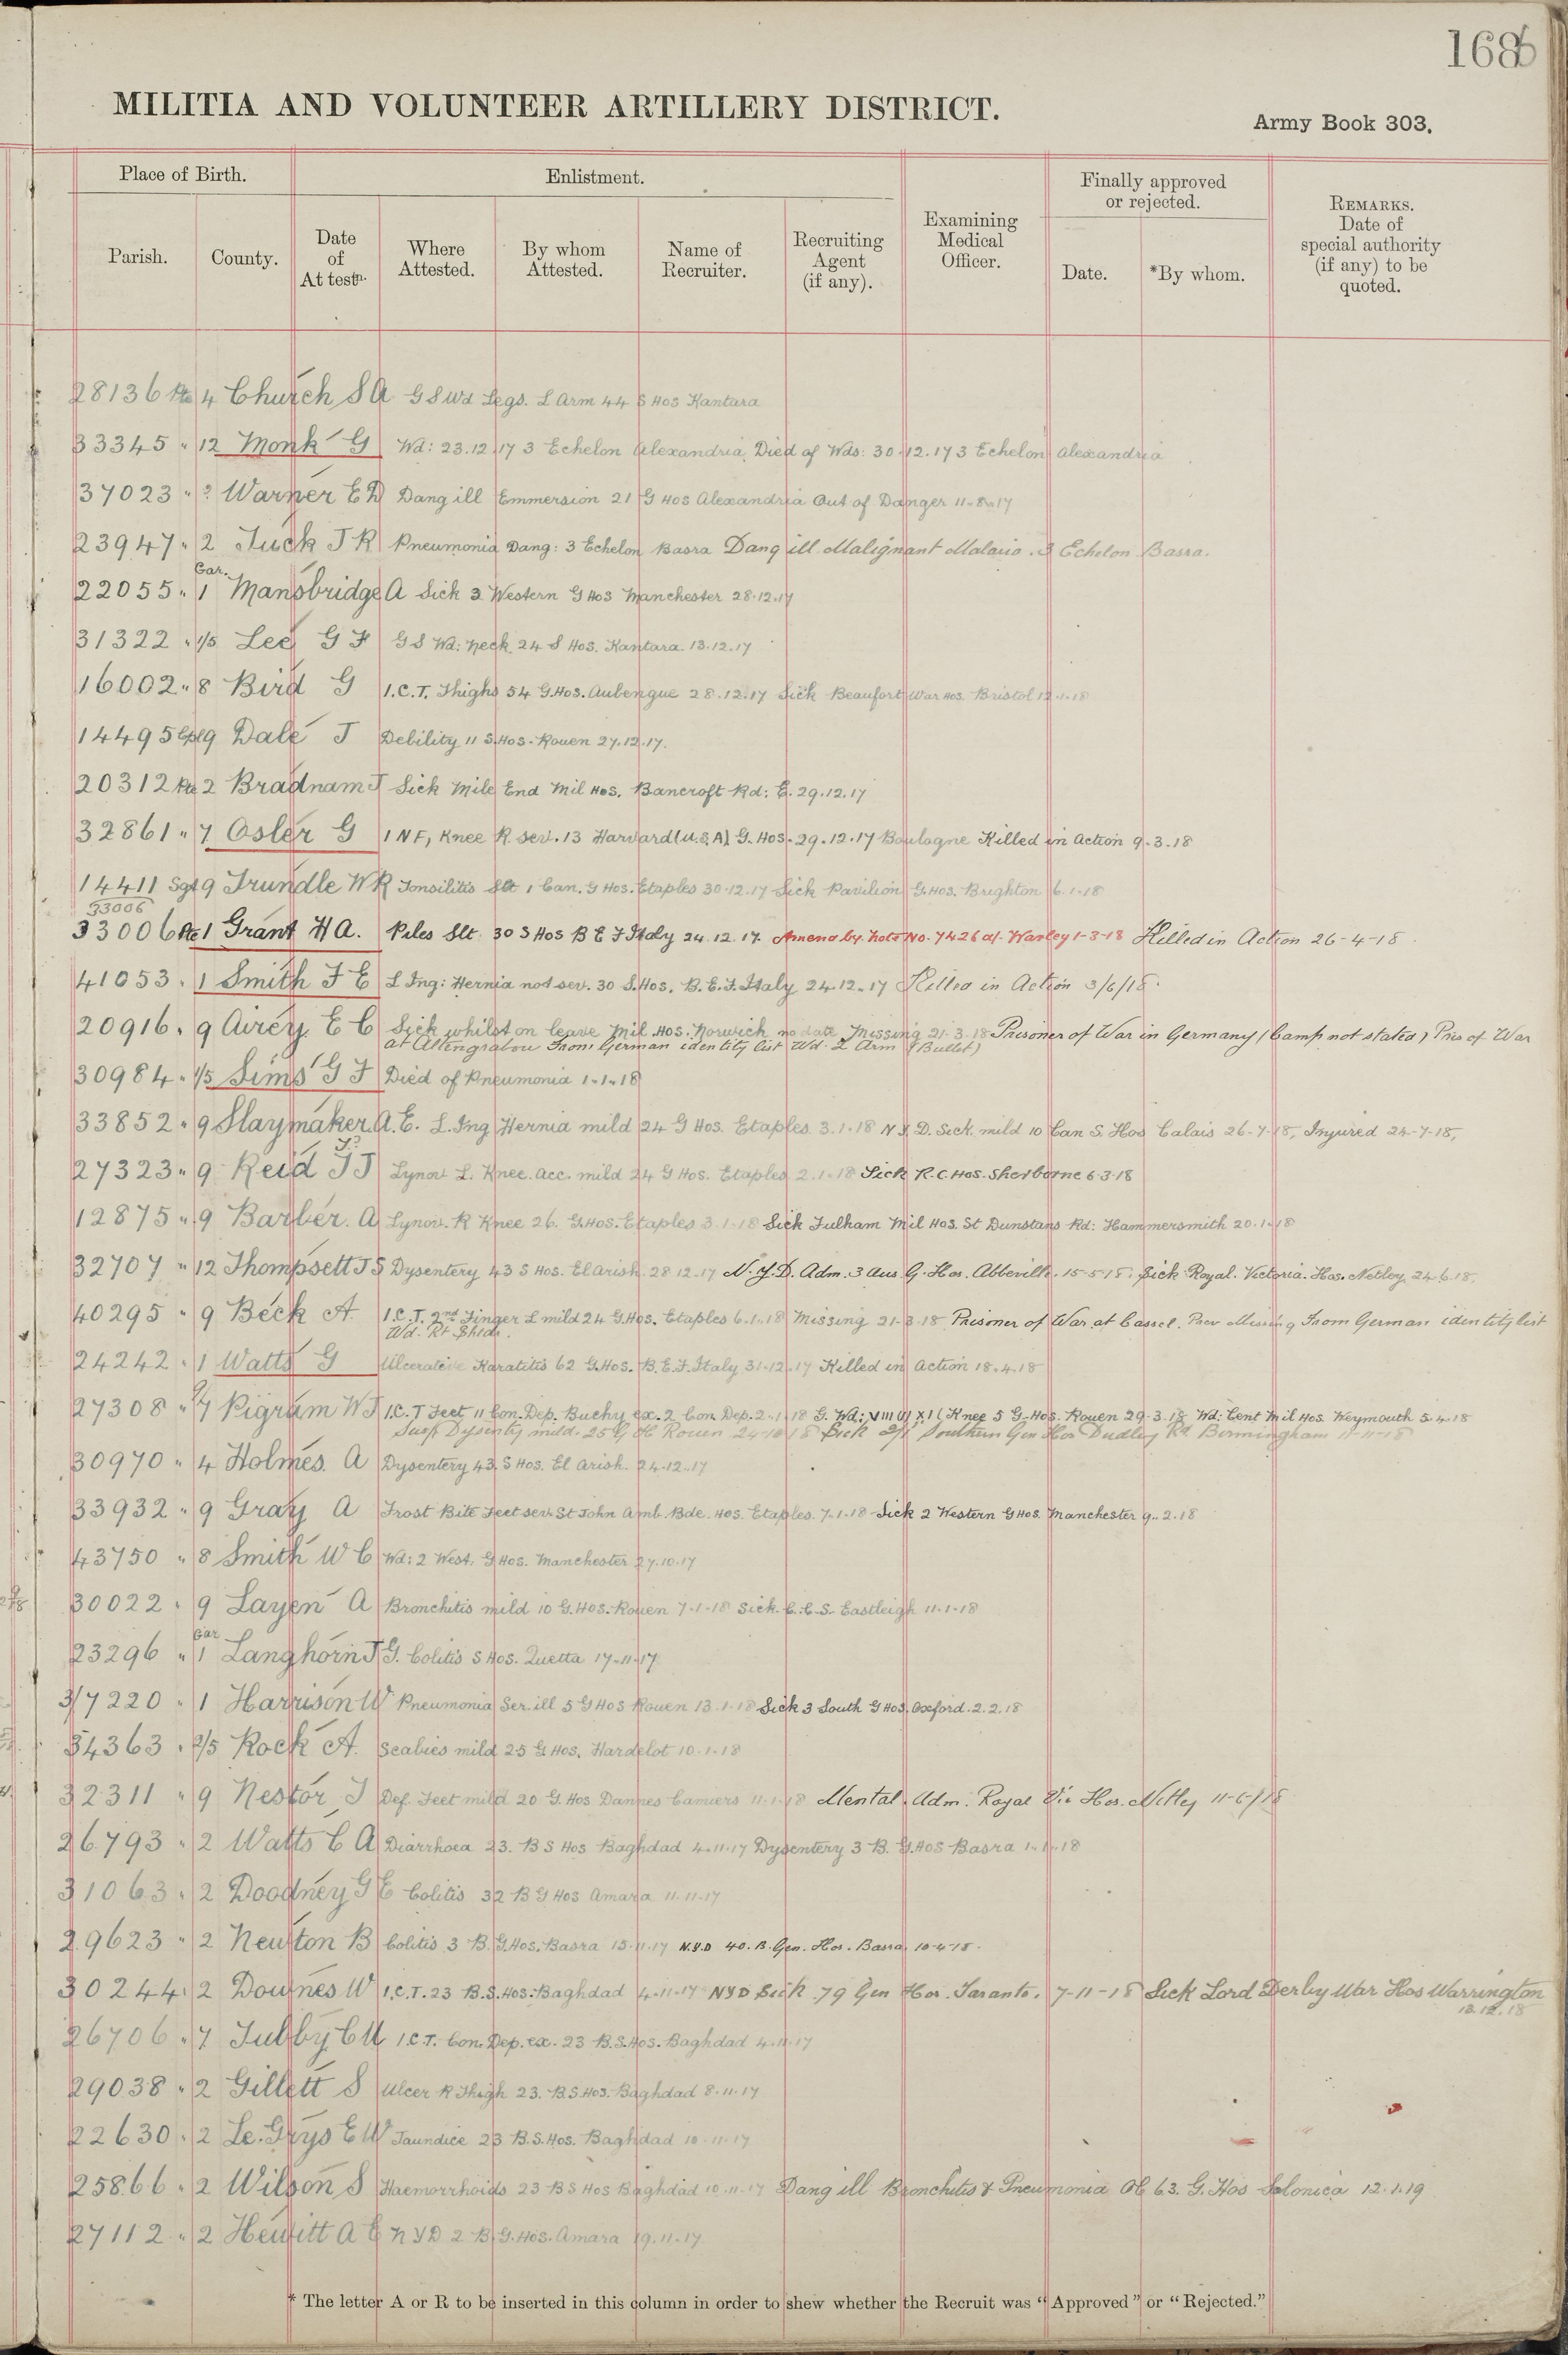 1686
MILITIA AND VOLUNTEER ARTILLERY DISTRICT.
Army Book 303.
Place of Birth. Enlistment. Finally approved or rejected. REMARKS. Date of special authority (if any) to be quoted.
Parish. County. Date of Attestn. Where Attested. By whom Attested. Name of Recruiter. Recruiting Agent (if any). Examining Medical Officer. Date. *By whom.
28136 Pte 4 Church S A G S Wd Legs. L Arm 44 S Hos Kantara
33345 " 12 Monk G Wd: 23.12.17 3 Echelon Alexandria. Died of Wds: 30.12.17 3 Echelon Alexandria
37023 " ? Warner E D Dang ill Emmersion 21 G Hos Alexandria Out of Danger 11-8-17
23947 " 2 Tuck J R Pneumonia Dang: 3 Echelon Basra Dang ill Malignant Malaria. 3 Echelon Basra.
22055 " Gar. 1 Mansbridge A Sick 3 Western G Hos Manchester 28.12.17
31322 " 1/5 Lee G F G S Wd: Neck. 24 S Hos. Kantara. 13.12.17
16002 " 8 Bird G I.C.T. Thighs 54 G.Hos. Aubengue 28.12.17 Sick Beaufort War Hos. Bristol 12.1.18
14495 Cpl 9 Dale J Debility 11 S.Hos. Rouen 27.12.17.
20312 Pte 2 Bradnam J Sick Mile End Mil Hos. Bancroft Rd: E. 29.12.17
32861 " 7 Osler G I N F, Knee R. Sev. 13 Harvard (U.S.A) G. Hos. 29.12.17 Boulogne Killed in Action 9.3.18
14411 Sgt 9 Trundle W R Tonsilitis Slt 1 Can. G Hos. Etaples 30.12.17 Sick Pavilion G.Hos. Brighton 6.1.18
33006
33006 Pte 1 Grant H A. Piles Slt. 30 S Hos B E F Italy 24.12.17. Amend by Note No. 7426 a/. Warley 1-3-18 Killed in Action 26-4-18.
41053 " 1 Smith F E L Ing: Hernia not sev. 30 S.Hos. B.E.F. Italy 24.12.17 Killed in Action 3/6/18.
20916 " 9 Airey E C Sick whilst on leave Mil Hos. Norwich no date Missing 21.3.18 Prisoner of War in Germany (Camp not stated) Pris of War
at Altengrabou From German identity list Wd. L Arm (Bullet)
30984 " 1/5 Sims G F Died of Pneumonia 1-1-18
33852 " 9 Slaymaker A.E. L. Ing Hernia mild 24 G Hos. Etaples 3.1.18 N.Y.D. Sick mild 10 Can S. Hos Calais 26-7-18, Injured 24-7-18,
27323 " 9 Reid J J Synov L. Knee. Acc. mild 24 G Hos. Etaples 2.1.18 Sick R.C. Hos. Sherborne 6.3.18
12875 " 9 Barber. A Synov. R Knee 26. G.Hos. Etaples 3.1.18 Sick Fulham Mil Hos. St Dunstans Rd: Hammersmith 20.1.18
32707 " 12 Thompsett J S Dysentery 43 S Hos. El Arish. 28.12.17 N.Y.D. Adm. 3 Aus. G. Hos. Abbeville. 15-5-18. Sick Royal. Victoria. Hos. Netley. 24.6.18.
40295 " 9 Beck A. I.C.T. 2nd Finger L mild 24 G.Hos. Etaples 6.1.18 Missing 21.3.18 Prisoner of War at Cassel. Prev Missing From German identity list
Wd. Rt Shldr.
24242 " 1 Watts G Ulcerative Karatitis 62 G.Hos. B.E.F. Italy 31.12.17 Killed in Action 18.4.18
27308 " 7 Pigram W J I.C.T Feet 11 Con. Dep. Buchy ex. 2 Con Dep. 2.1.18 G. Wd: VIII (1) XI ( Knee 5 G. Hos. Rouen 29.3.18 Wd: Cent Mil Hos. Weymouth 5.4.18
Susp Dysentry mild. 25 G H Rouen 24-10-18 Sick 2/1 Southern Gen Hos Dudley Rd Birmingham 11-11-18
30970 " 4 Holmes. A Dysentery 43. S Hos. El Arish. 24.12.17
33932 " 9 Gray A Frost Bite Feet sev. St John Amb. Bde. Hos. Etaples. 7.1.18 Sick 2 Western G Hos. Manchester 9.2.18
43750 " 8 Smith W C Wd: 2 West. G Hos. Manchester 27.10.17
30022 " 9 Layen A Bronchitis mild 10 G.Hos. Rouen 7.1.18 Sick. C.C.S. Eastleigh 11.1.18
23296 " Gar 1 Langhorn J G. Colitis S Hos. Quetta 17.11.17
3/7220 " 1 Harrison W Pneumonia Ser. ill 5 G Hos Rouen 13.1.18 Sick 3 South G Hos. Oxford. 2.2.18
34363 " 2/5 Rock A. Scabies mild 25 G Hos. Hardelot 10.1.18
32311 " 9 Nestor J Def. Feet mild 20 G. Hos Dannes Camiers 11.1.18 Mental. Adm. Royal Vic Hos. Netley 11-6/18
26793 " 2 Watts C A Diarrhoea 23. B S Hos Baghdad 4.11.17 Dysentery 3 B. G.Hos Basra 1.1.18
31063 " 2 Doodney G E Colitis 32 B G Hos Amara 11.11.17
29623 " 2 Newton B Colitis 3 B. G.Hos. Basra 15.11.17 N.Y.D 40. B. Gen. Hos. Basra 10.4.18.
30244 " 2 Downes W I.C.T. 23 B.S.Hos: Baghdad 4.11.17 NYD Sick 79 Gen Hos. Taranto. 7-11-18 Sick Lord Derby War Hos Warrington
13.12.18
26706 " 7 Tubby C W I.C.T. Con. Dep. ex. 23 B.S.Hos. Baghdad 4.11.17
29038 " 2 Gillett S Ulcer R Thigh 23. B.S.Hos. Baghdad 8.11.17
22630 " 2 Le. Grys E W Jaundice 23 B.S.Hos. Baghdad 10.11.17
25866 " 2 Wilson S Haemorrhoids 23 B S Hos Baghdad 10.11.17 Dang ill Bronchitis & Pneumonia 63. G. Hos Salonica 12.1.19
27112 " 2 Hewitt A E N Y D 2 B. G.Hos. Amara 19.11.17
* The letter A or R to be inserted in this column in order to shew whether the Recruit was "Approved" or "Rejected."